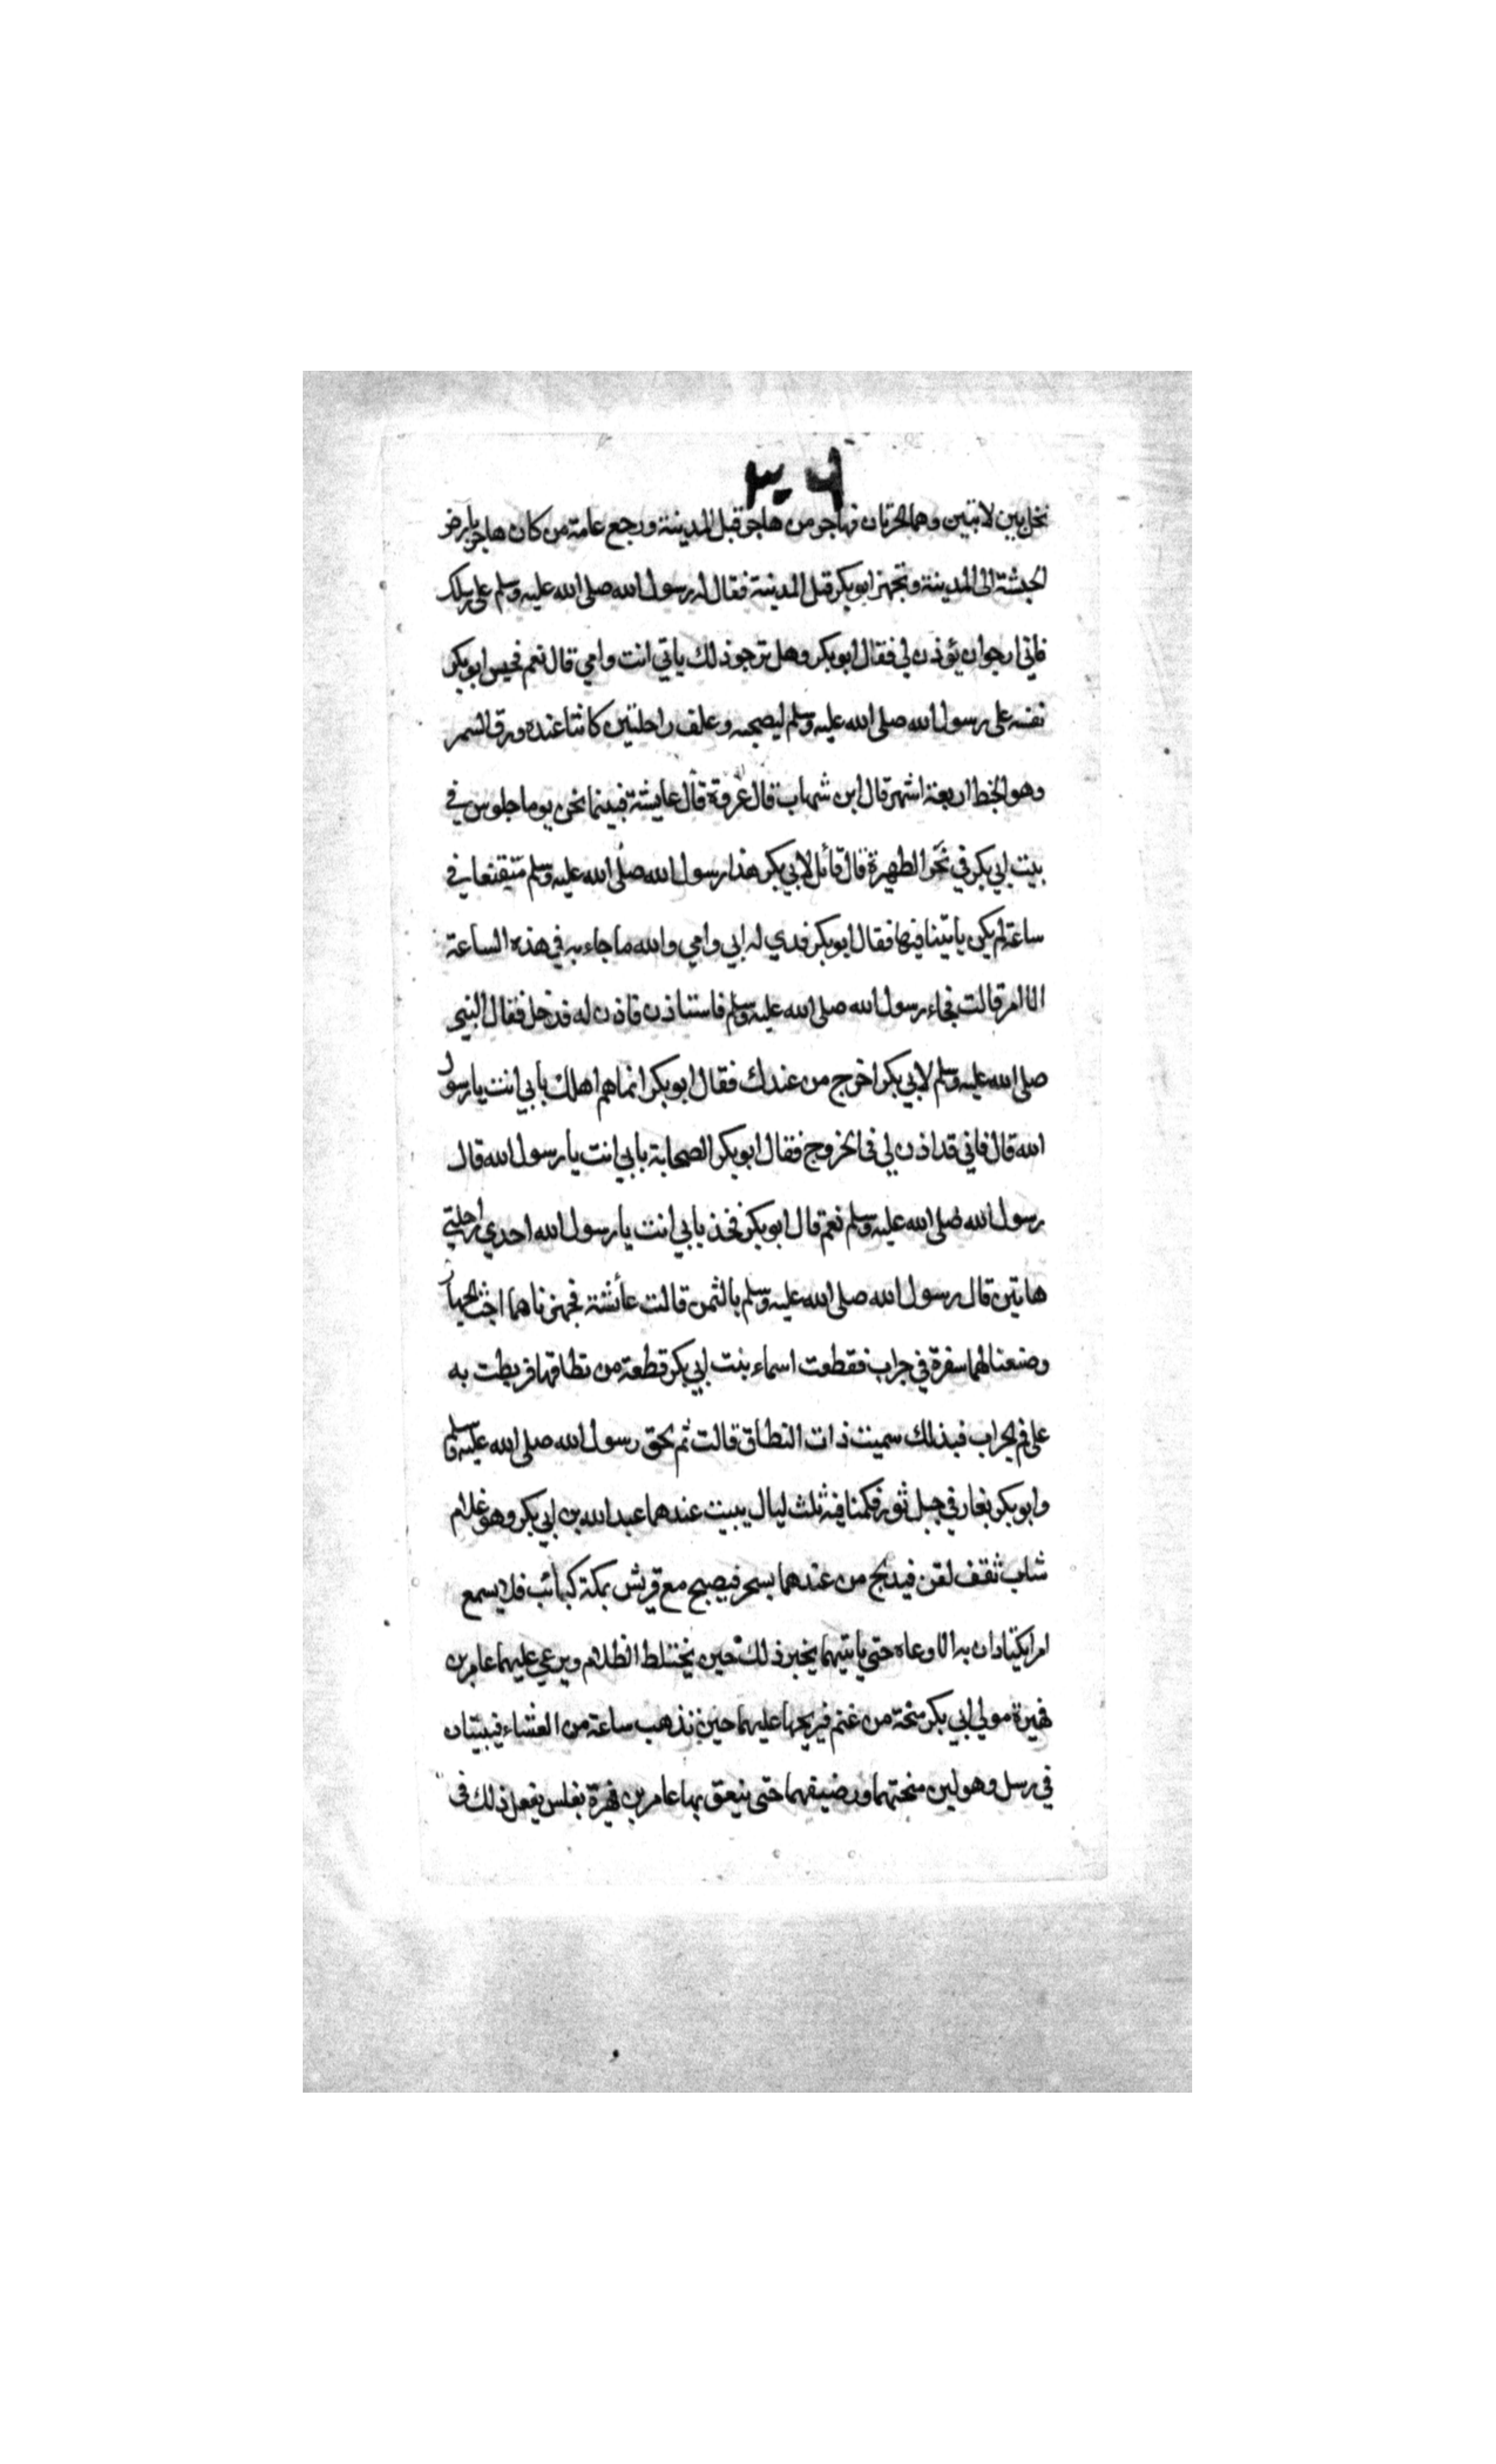 ٣٠٦
نخل بين لابتين وهما الحرتان فهاجر من هاجر قبل المدينة ورجع عامة من كان هاجر بارض
الحبشة الى المدينة وتجهز ابوبكر قبل المدينة فقال له رسول الله صلى الله عليه وسلم على رسلك
فاني ارجوان يؤذن لي فقال ابوبكر وهل ترجو ذلك بابي انت وامي قال نعم فحبس ابوبكر
نفسه على رسول الله صلى الله عليه وسلم ليصحبه وعلف راحلتين كانتا عنده ورق السمر
وهو الخبط اربعة اشهر قال ابن شهاب قال عروة قال عايشة فبينما نحن يوما جلوس في
بيت ابي بكر في نحر الظهيرة قال قائل لابي بكر هذا رسول الله صلى الله عليه وسلم متقنعا في
ساعة لم يكن ياتينا فيها فقال ابوبكر فدي له ابي وامي والله ما جاء به في هذه الساعة
الا امر قالت فجاء رسول الله صلى الله عليه وسلم فاستاذن فاذن له فدخل فقال النبي
صلى الله عليه وسلم لابي بكر اخرج من عندك فقال ابوبكر انما هم اهلك بابي انت يا رسول
الله قال فاني قد اذن لي في الخروج فقال ابوبكر الصحابة بابي انت يا رسول الله قال
رسول الله صلى الله عليه وسلم نعم قال ابوبكر فخذ بابي انت يا رسول الله احدي راحلتي
هاتين قال رسول الله صلى الله عليه وسلم بالثمن قالت عائشة فجهزناهما احث الجهاز
وصنعنا لهما سفرة في جراب فقطعت اسماء بنت ابي بكر قطعة من نطاقها فربطت به
على فم الجراب فبذلك سميت ذات النطاق قالت ثم لحق رسول الله صلى الله عليه وسلم
وابوبكر بغار في جبل ثور فكمنا فيه ثلث ليال يبيت عندهما عبد الله بن ابي بكر وهو غلام
شاب ثقف لقن فيدلج من عندهما بسحر فيصبح مع قريش بمكة كبائت فلا يسمع
امرا يكتادان به الا وعاه حتى ياتيهما بخبر ذلك حين يختلط الظلام ويرعي عليهما عامر بن
فهيرة مولي ابي بكر منحة من غنم فيريحها عليهما حين تذهب ساعة من العشاء فيبيتان
في رسل وهو لبن منحتهما ورضيفهما حتى ينعق بها عامر بن فهيرة بغلس يفعل ذلك في